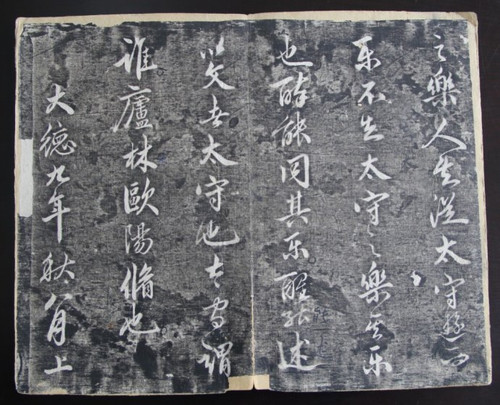 之樂人知從太守遊而
樂不知太守之樂其樂
也醉能同其樂醒能述
以文者太守也太守謂
誰廬林歐陽脩也
大德九年秋八月上